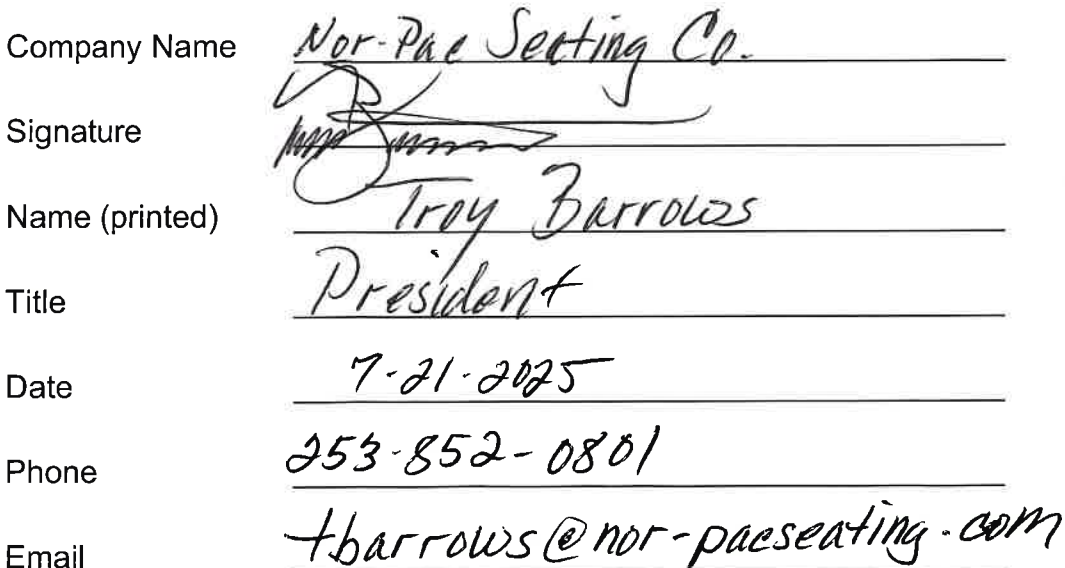 Company Name Nor-Pac Seating Co.
Signature
Name (printed) Troy Barrows
Title President
Date 7-21-2025
Phone 253-852-0801
Email tbarrows@nor-pacseating.com